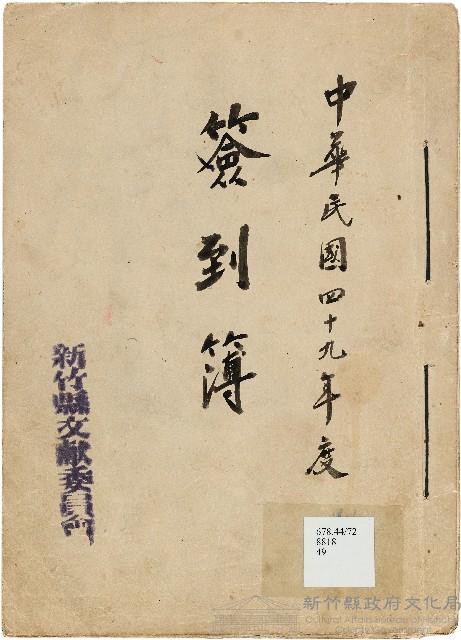 中華民國四十九年度
簽到簿
新竹縣文獻委員會
678.44/72
8818
49
新竹縣政府文化局
Cultural Affairs Bureau of Hsinchu
County Government